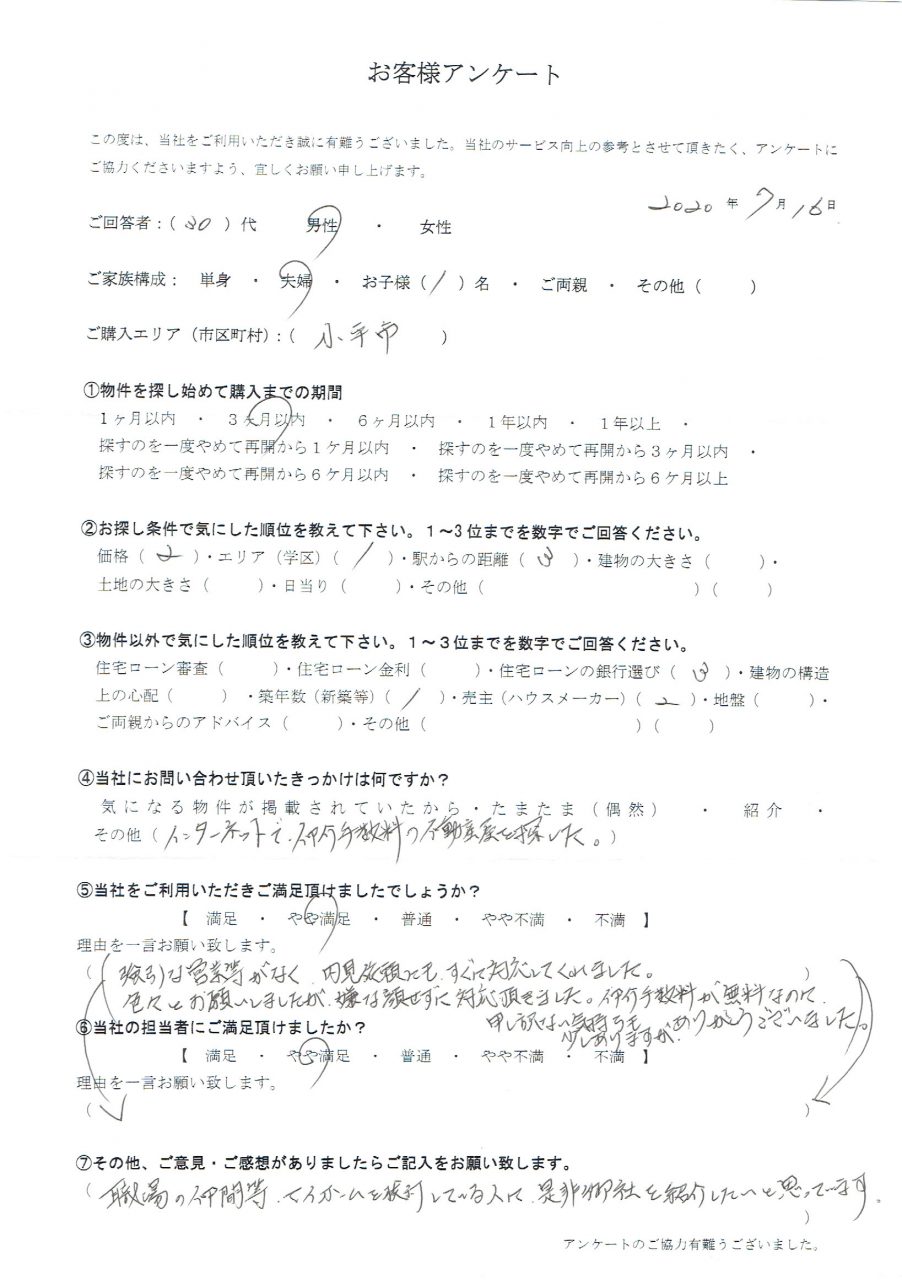 お客様アンケート
この度は、当社をご利用いただき誠に有難うございました。当社のサービス向上の参考とさせて頂きたく、アンケートに
ご協力くださいますよう、宜しくお願い申し上げます。
2020 年 7 月 16 日
ご回答者：（ 30 ）代 男性 ・ 女性
ご家族構成： 単身 ・ 夫婦 ・ お子様（ 1 ）名 ・ ご両親 ・ その他（ ）
ご購入エリア（市区町村）：（ 小平市 ）
①物件を探し始めて購入までの期間
1ヶ月以内 ・ 3ヶ月以内 ・ 6ヶ月以内 ・ 1年以内 ・ 1年以上 ・
探すのを一度やめて再開から1ケ月以内 ・ 探すのを一度やめて再開から3ヶ月以内 ・
探すのを一度やめて再開から6ケ月以内 ・ 探すのを一度やめて再開から6ケ月以上
②お探し条件で気にした順位を教えて下さい。1～3位までを数字でご回答ください。
価格（ 2 ）・エリア（学区）（ 1 ）・駅からの距離（ 3 ）・建物の大きさ（ ）・
土地の大きさ（ ）・日当り（ ）・その他（ ）（ ）
③物件以外で気にした順位を教えて下さい。1～3位までを数字でご回答ください。
住宅ローン審査（ ）・住宅ローン金利（ ）・住宅ローンの銀行選び（ 3 ）・建物の構造
上の心配（ ） ・築年数（新築等）（ 1 ）・売主（ハウスメーカー）（ 2 ）・地盤（ ）・
ご両親からのアドバイス（ ）・その他（ ）（ ）
④当社にお問い合わせ頂いたきっかけは何ですか？
気になる物件が掲載されていたから・たまたま（偶然） ・ 紹介 ・
その他（ インターネットで、仲介手数料の不動産屋を探した。）
⑤当社をご利用いただきご満足頂けましたでしょうか？
【 満足 ・ やや満足 ・ 普通 ・ やや不満 ・ 不満 】
理由を一言お願い致します。
（ 強引な営業等がなく、内見依頼にも、すぐに対応してくれました。 ）
色々とお願いしましたが、嫌な顔せずに対応頂きました。仲介手数料が無料なので、
申し訳ない気持ちも
少しありますが、ありがとうございました。
⑥当社の担当者にご満足頂けましたか？
【 満足 ・ やや満足 ・ 普通 ・ やや不満 ・ 不満 】
理由を一言お願い致します。
（ ）
⑦その他、ご意見・ご感想がありましたらご記入をお願い致します。
（ 職場の仲間等、マイホームを検討している人に、是非御社を紹介したいと思っています。
）
アンケートのご協力有難うございました。